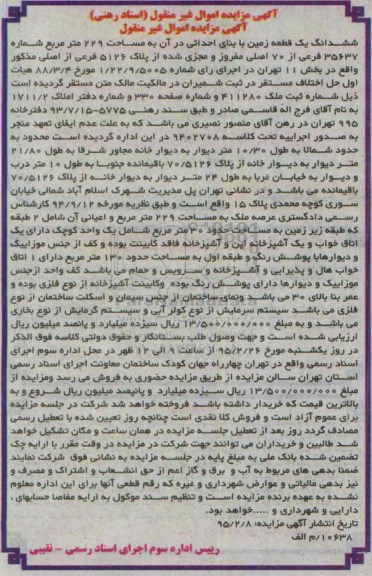 آگهی مزایده اموال غیر منقول (اسناد رهنی)
آگهی مزایده اموال غیر منقول
ششدانگ یک قطعه زمین با بنای احداثی در آن به مساحت ۲۲۹ متر مربع شماره
۳۵۶۳۷ فرعی از ۷۰ اصلی مفروز و مجزی شده از پلاک ۵۱۲۶ فرعی از اصلی مذکور
واقع در بخش ۱۱ تهران در اجرای رای شماره ۱/۲۲/۹/۵۰۰۵ مورخ ۸۸/۳/۴ هیات
اول حل اختلاف مستقر در ثبت شمیران در مالکیت مالک متن مستقر گردیده است
ذیل شماره ثبت ملک ۴۱۱۲۸۰ و شماره صفحه ۳۳۰ و شماره دفتر املاک ۱۷۱۱/۲
به نام آقای فرج اله قاسمی صادر و طبق سند رهنی ۵۷۷۵-۹۳/۷/۱۵ دفترخانه
۹۹۵ تهران در رهن آقای منصور نصیری می باشد که به علت عدم ایفای تعهد منجر
به صدور اجراییه تحت کلاسه ۹۴۰۲۷۰۸ در این اداره گردیده است محدود به
حدود شمالا به طول ۱۰/۳۰ متر دیوار به دیوار خانه مجاور شرقا به طول ۲۱/۸۰
متر دیوار به دیوار خانه از پلاک ۷۰/۵۱۲۶ باقیمانده جنوبا به طول ۱۰ متر درب
و دیوار به خیابان غربا به طول ۲۴ متر دیوار به دیوار خانه از پلاک ۷۰/۵۱۲۶
باقیمانده می باشد و در نشانی تهران پل مدیریت شهرک اسلام آباد شمالی خیابان
سوری کوچه محمدی پلاک ۱۵ واقع است و طبق نظریه مورخه ۹۴/۹/۱۲ کارشناس
رسمی دادگستری عرصه ملک به مساحت ۲۲۹ متر مربع و اعیانی آن شامل ۲ طبقه
که طبقه زیر زمین به مساحت حدود ۳۰ متر مربع شامل یک واحد کوچک دارای یک
اتاق خواب و یک آشپزخانه اپن و آشپزخانه فاقد کابینت بوده و کف از جنس موزاییگ
و دیوارهابا پوشش رنگ و طبقه اول به مساحت حدود ۱۳۰ متر مربع دارای ۱ اتاق
خواب هال و پذیرایی و آشپزخانه و سرویس و حمام می باشد کف واحد ازجنس
موزاییک و دیوارها دارای پوشش رنگ بوده وکابینت آشپزخانه از نوع فلزی بوده و
عمر بنا بالای ۳۰ می باشد ونمای ساختمان از جنس سیمان و اسکلت ساختمان از نوع
فلزی می باشد سیستم سرمایش از نوع کولر آبی و سیستم گرمایش از نوع بخاری
می باشد و به مبلغ ۱۳/۵۰۰/۰۰۰/۰۰۰ ریال سیزده میلیارد و پانصد میلیون ریال
ارزیابی شده است و جهت وصول طلب بستانکار و حقوق دولتی کلاسه فوق الذکر
در روز یکشنبه مورخ ۹۵/۲/۲۶ از ساعت ۹ الی ۱۲ ظهر در محل اداره سوم اجرای
اسناد رسمی واقع در تهران چهارراه جهان کودک ساختمان معاونت اجرای اسناد رسمی
استان تهران سالن مزایده از طریق مزایده حضوری به فروش می رسد ومزایده از
مبلغ ۱۳/۵۰۰/۰۰۰/۰۰۰ ریال سیزده میلیارد و پانصد میلیون ریال شروع و به
بالاترین قیمت که خریدار داشته باشد فروخته خواهد شد شرکت در جلسه مزایده
برای عموم آزاد است و فروش کلا نقدی است چنانچه روز تعیین شده با تعطیل رسمی
مصادف گردد روز بعد از تعطیل جلسه مزایده در همان ساعت و مکان تشکیل خواهد
شد طالبین و خریداران می توانند جهت شرکت در مزایده در وقت مقرر با ارایه چک
تضمین شده بانک ملی به مبلغ پایه در جلسه مزایده به نشانی فوق شرکت نمایند
ضمنا بدهی های مربوط به آب و برق و گاز اعم از حق انشعاب و اشتراک و مصرف و
نیز بدهی مالیاتی و عوارض شهرداری و غیره که رقم قطعی آنها برای این اداره معلوم
نشده به عهده برنده مزایده است و تنظیم سند موکول به ارایه مفاصا حسابهای ،
دارایی و شهرداری و .....خواهد بود.
تاریخ انتشار آگهی مزایده: ۹۵/۲/۸
۱۰۶۳۸/م الف
رییس اداره سوم اجرای اسناد رسمی - نقیبی